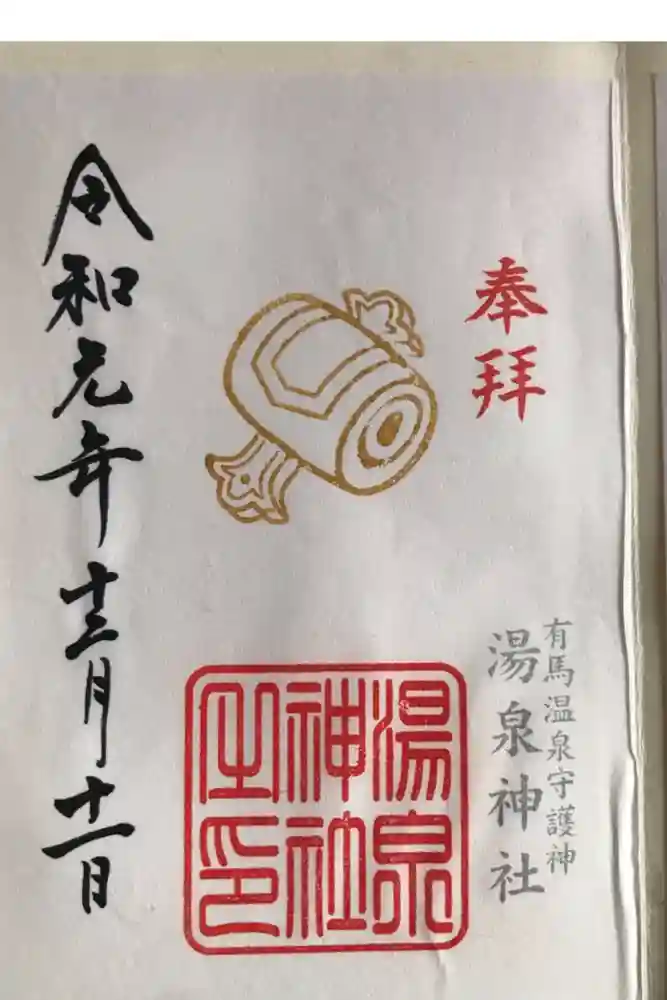 奉拝
有馬温泉守護神
湯泉神社
湯泉
神社
之印
令和元年十二月十一日